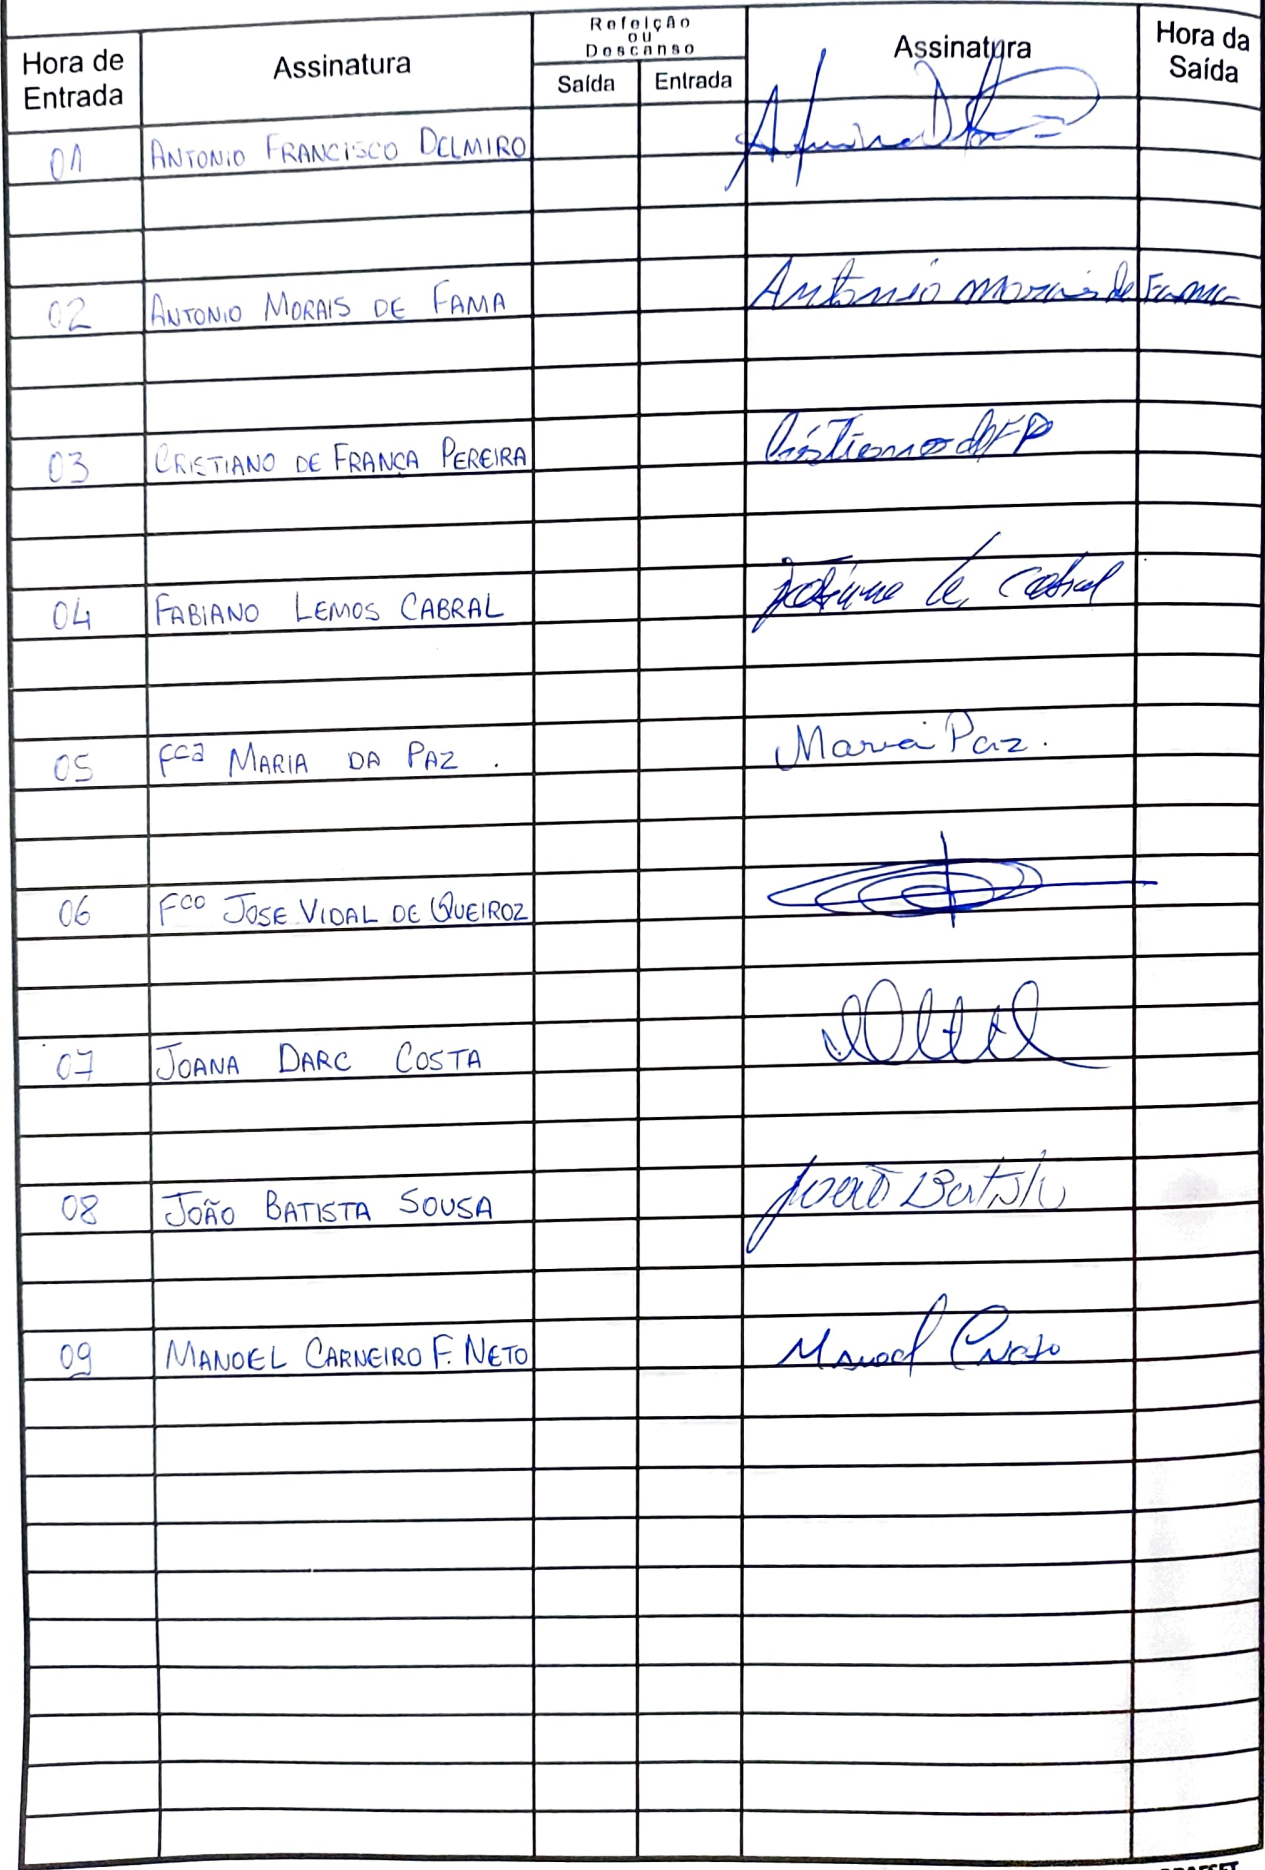 Hora de Entrada Assinatura Refeição ou Descanso Saída Entrada Assinatura Hora da Saída
01 ANTONIO FRANCISCO DELMIRO
02 ANTONIO MORAIS DE FAMA Antonio Morais de Fama
03 CRISTIANO DE FRANÇA PEREIRA Cristiano dFP
04 FABIANO LEMOS CABRAL Fabiano Le, Cabral
05 Fca MARIA DA PAZ . Maria Paz.
06 Fco JOSE VIDAL DE QUEIROZ
07 JOANA DARC COSTA
08 JOÃO BATISTA SOUSA João Batista
09 MANOEL CARNEIRO F. NETO Manoel